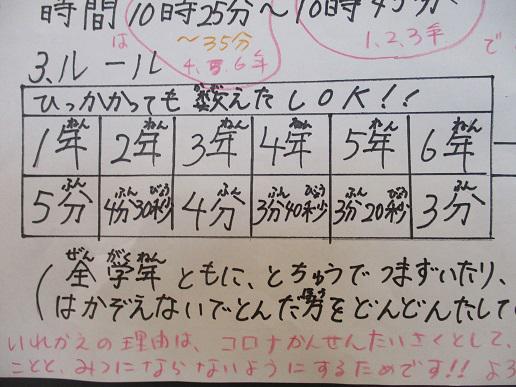 時間 10時25分〜10時45分
は 〜35分
4.5.6年 1.2.3年 で
3.ルール
ひっかかっても数えたしOK!!
1年 2年 3年 4年 5年 6年
5分 4分30秒 4分 3分40秒 3分20秒 3分
(全学年ともに、とちゅうでつまずいたり、
はかぞえないでとんだ労をどんどんたして
いれかえの理由は、コロナかんせんたいさくとして、
ことと、みつにならないようにするためです!! よろ